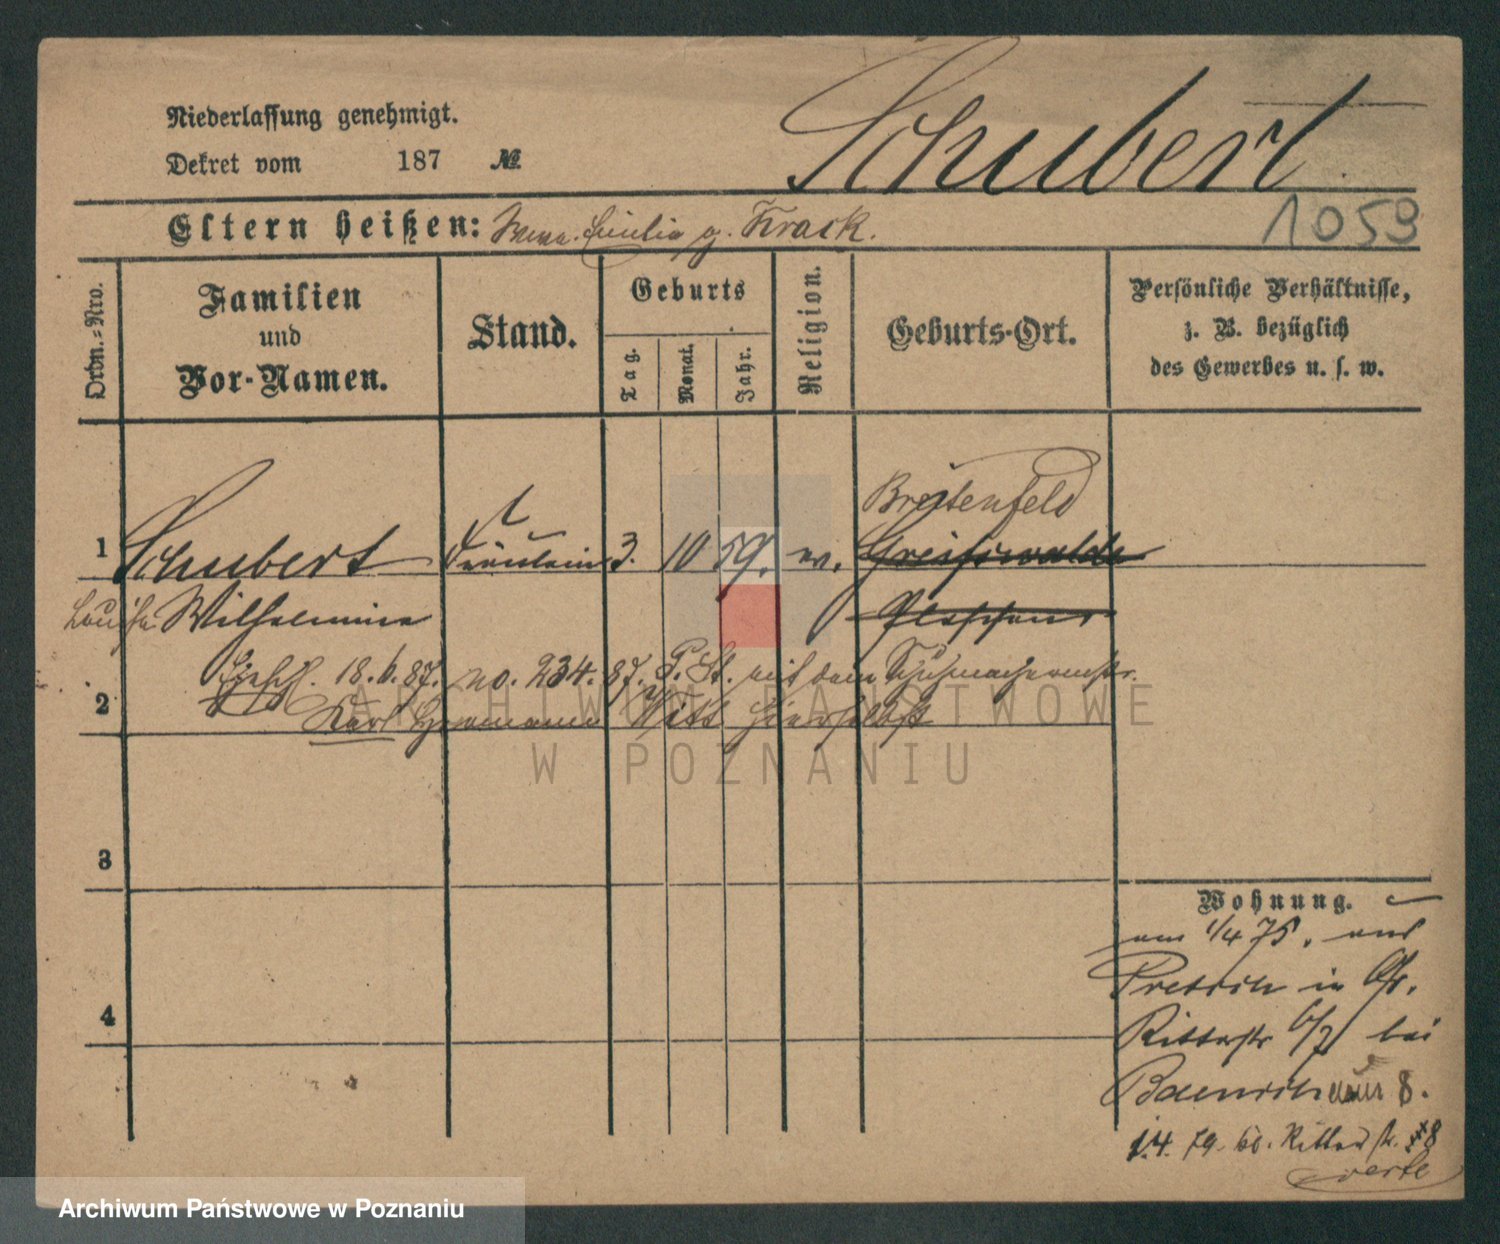 Schubert
Niederlassung genehmigt.
Dekret vom 187 №
1059
Eltern heißen: g. Krack.
Ordn.-Nro.
Familien
und
Vor-Namen.
Stand.
Geburts
Tag.
Monat.
Jahr.
Religion.
Geburts-Ort.
Persönliche Verhältnisse,
z. B. bezüglich
des Gewerbes u. s. w.
Breitenfeld
1 Schubert Fräulein 3. 10 59. ev. Greifswalde
Louise Wilhelmine
18.6.87. no. 234. 87. P. St. mit dem Schuhmachermstr.
2 Karl Hermann Witt hierselbst
3
4
Wohnung.
am 1/4 75. aus
in Gr.
Ritterstr 6/7 bei
8.
1.4. 79. Ritterstr. 8
verte
ARCHIWUM PAŃSTWOWE
W POZNANIU
Archiwum Państwowe w Poznaniu